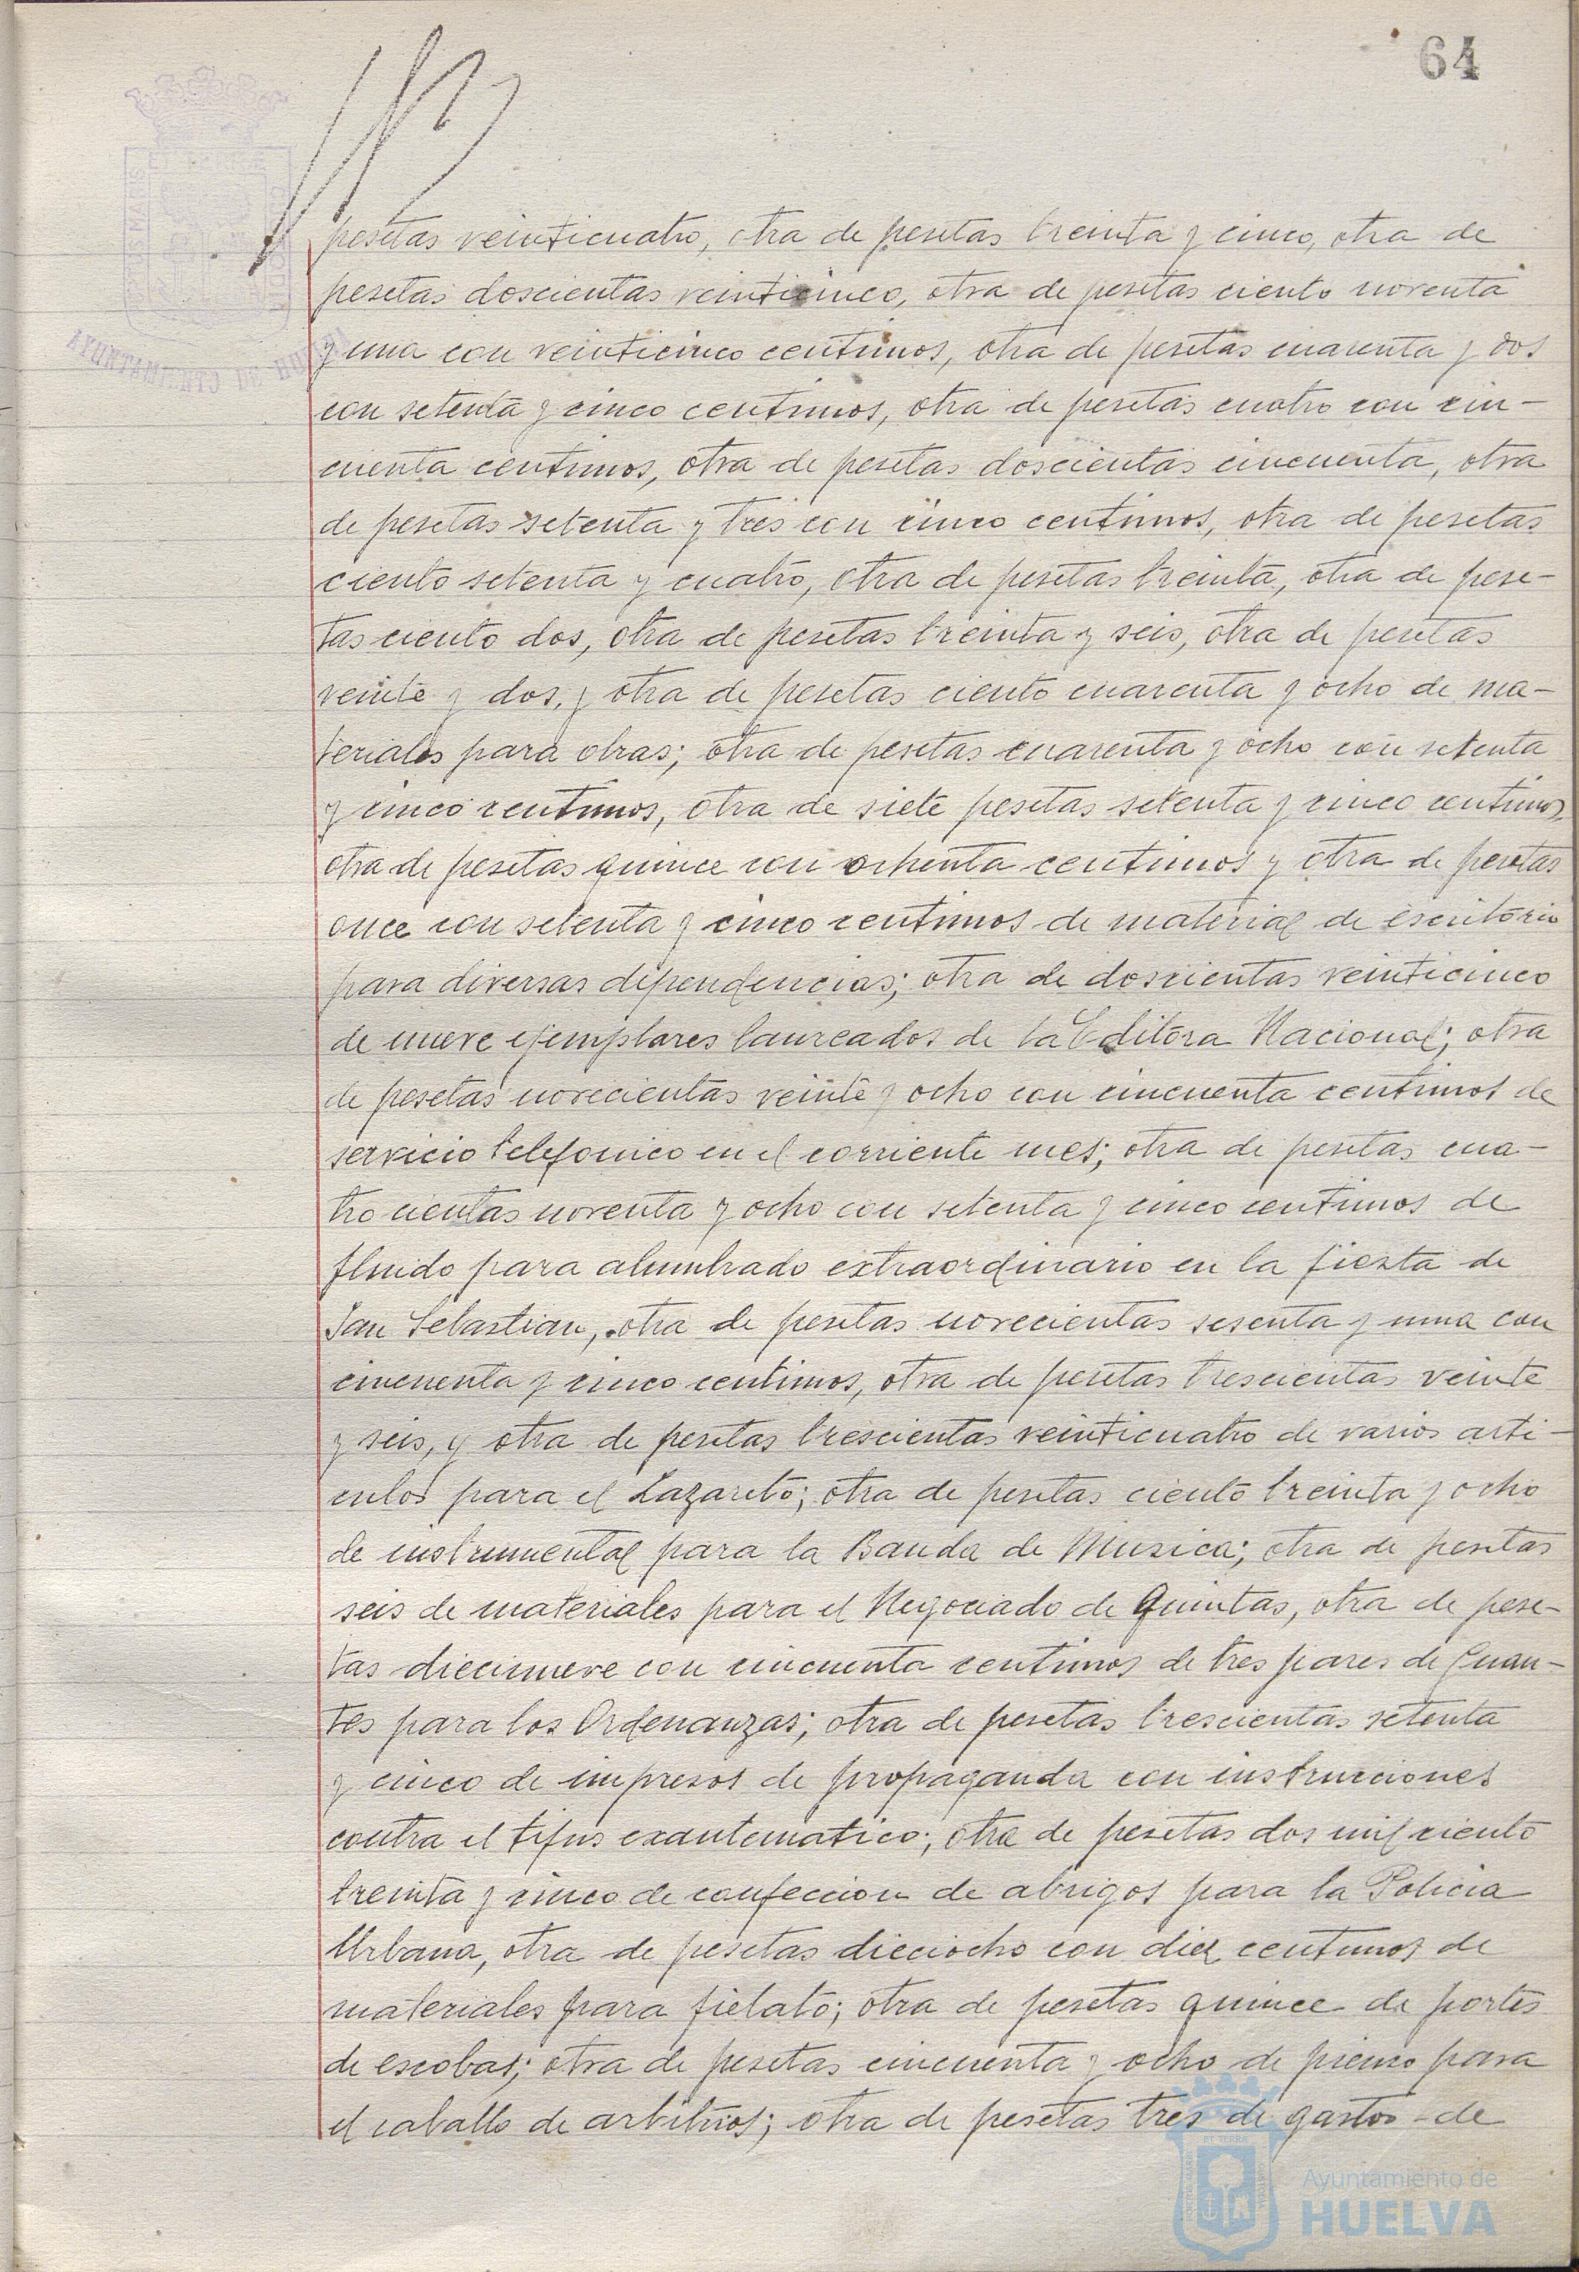 64
AYUNTAMIENTO DE HUELVA
pesetas veinticuatro, otra de pesetas treinta y cinco, otra de
pesetas doscientas veinticinco, otra de pesetas ciento noventa
y una con veinticinco centimos, otra de pesetas cuarenta y dos
con setenta y cinco centimos, otra de pesetas cuatro con cin-
cuenta centimos, otra de pesetas doscientas cincuenta, otra
de pesetas setenta y tres con cinco centimos, otra de pesetas
ciento setenta y cuatro, otra de pesetas treinta, otra de pese-
tas ciento dos, otra de pesetas treinta y seis, otra de pesetas
veinte y dos, y otra de pesetas ciento cuarenta y ocho de ma-
teriales para obras; otra de pesetas cuarenta y ocho con setenta
y cinco centimos, otra de siete pesetas setenta y cinco centimos,
otra de pesetas quince con ochenta centimos y otra de pesetas
once con setenta y cinco centimos de material de escritorio
para diversas dependencias; otra de doscientas veinticinco
de nueve ejemplares laureados de la Editora Nacional; otra
de pesetas novecientas veinte y ocho con cincuenta centimos de
servicio telefonico en el corriente mes; otra de pesetas cua-
trocientas noventa y ocho con setenta y cinco centimos de
fluido para alumbrado extraordinario en la fiesta de
San Sebastian, otra de pesetas novecientas sesenta y una con
cincuenta y cinco centimos, otra de pesetas trescientas veinte
y seis, y otra de pesetas trescientas veinticuatro de varios arti-
culos para el Lazareto; otra de pesetas ciento treinta y ocho
de instrumental para la Banda de Musica; otra de pesetas
seis de materiales para el Negociado de Quintas, otra de pese-
tas diecinueve con cincuenta centimos de tres pares de Guan-
tes para los Ordenanzas; otra de pesetas trescientas setenta
y cinco de impresos de propaganda con instrucciones
contra el tifus exantematico; otra de pesetas dos mil ciento
treinta y cinco de confeccion de abrigos para la Policia
Urbana, otra de pesetas dieciocho con diez centimos de
materiales para fielato; otra de pesetas quince de portes
de escobas; otra de pesetas cincuenta y ocho de pienso para
el caballo de arbitrios; otra de pesetas tres de gastos de
Ayuntamiento de
HUELVA